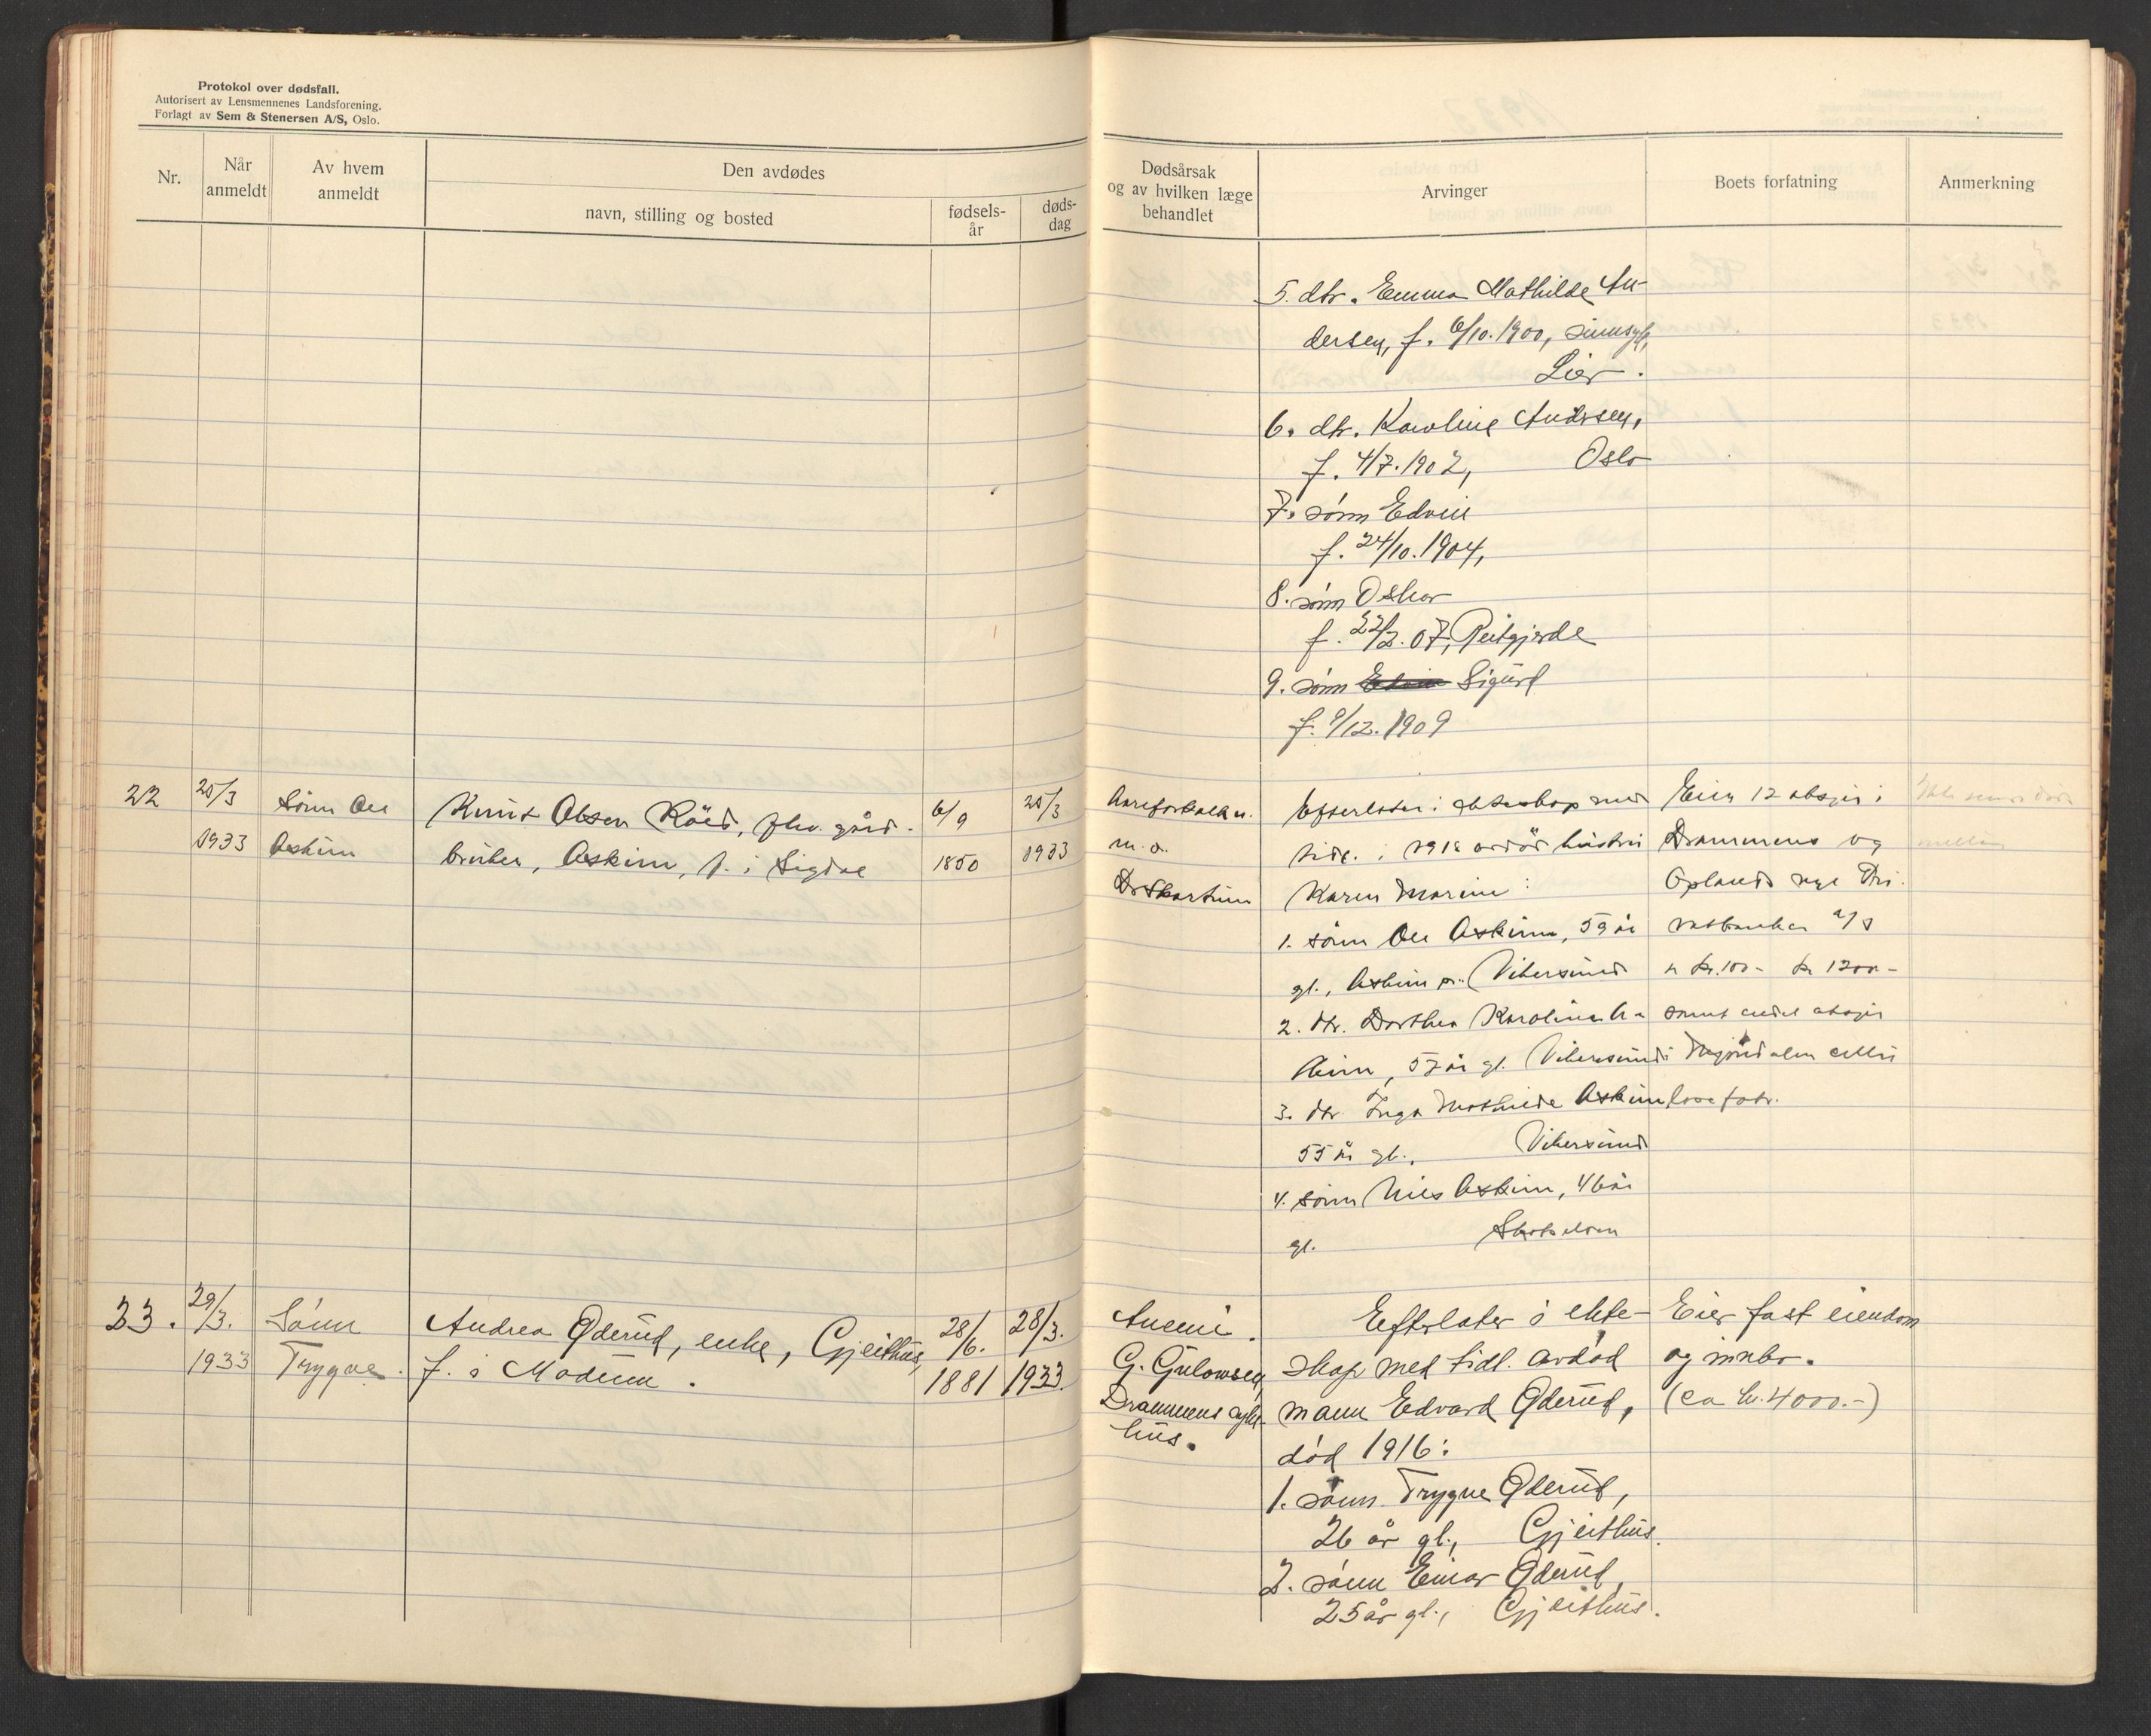 Protokol over dødsfall.
Autorisert av Lensmennenes Landsforening.
Forlagt av Sem & Stenersen A/S, Oslo.
Nr.
Når
anmeldt
Av hvem
anmeldt
Den avdødes
navn, stilling og bosted
fødsels-
år
døds-
dag
Dødsårsak
og av hvilken læge
behandlet
Arvinger
Boets forfatning
Anmerkning
5. dtr. Emma Mathilde An-
dersen, f. 6/10. 1900, sinnsyk,
Lier.
6. dtr. Karoline Andersen,
f. 4/7. 1902, Oslo
7. sønn Edvin
f. 24/10. 1904,
8. sønn Oskar
f. 22/2. 07, Reitgjerde
9. sønn Sigurd
f. 9/12. 1909
22
25/3
1933
Sønn Ole
Askim
Knut Olsen Röed, fhv. gård-
bruker, Askim, f. i Sigdal
6/9
1850
25/3
1933
Aareforkalkn.
m. a.
Dr Skartum
Efterlater i ekteskap med
tidl. i 1918 avdöd hustru
Karen Marine:
1. sönn Ole Askim, 59 år
gl., Askim pr. Vikersund
2. dtr. Dorthea Karoline As-
kim, 57 år gl. Vikersund
3. dtr. Inga Mathilde Askim
55 år gl., Vikersund
4. sönn Nils Askim, 46 år
gl. Skotselven
Eier 12 aksjer i
Drammens og
Oplands nye Pri-
vatbanker a/s
a kr. 100- kr 1200-
samt endel aksjer
i Mjöndalen cellu
losefabr.
23.
29/3.
1933
Sønn
Trygve.
Andrea Øderud, enke, Gjeithus,
f. i Modum.
28/6.
1881
28/3.
1933.
Anemi.
G. Gulowsen,
Drammens syke-
hus.
Eefterlater i ekte-
skap med tidl. avdød
mann Edvard Øderud,
død 1916:
1. sønn Trygve Øderud,
26 år gl., Gjeithus.
2. sønn Einar Øderud,
25 år gl., Gjeithus.
Eier fast eiendom
og innbo.
(ca kr. 4000.-)